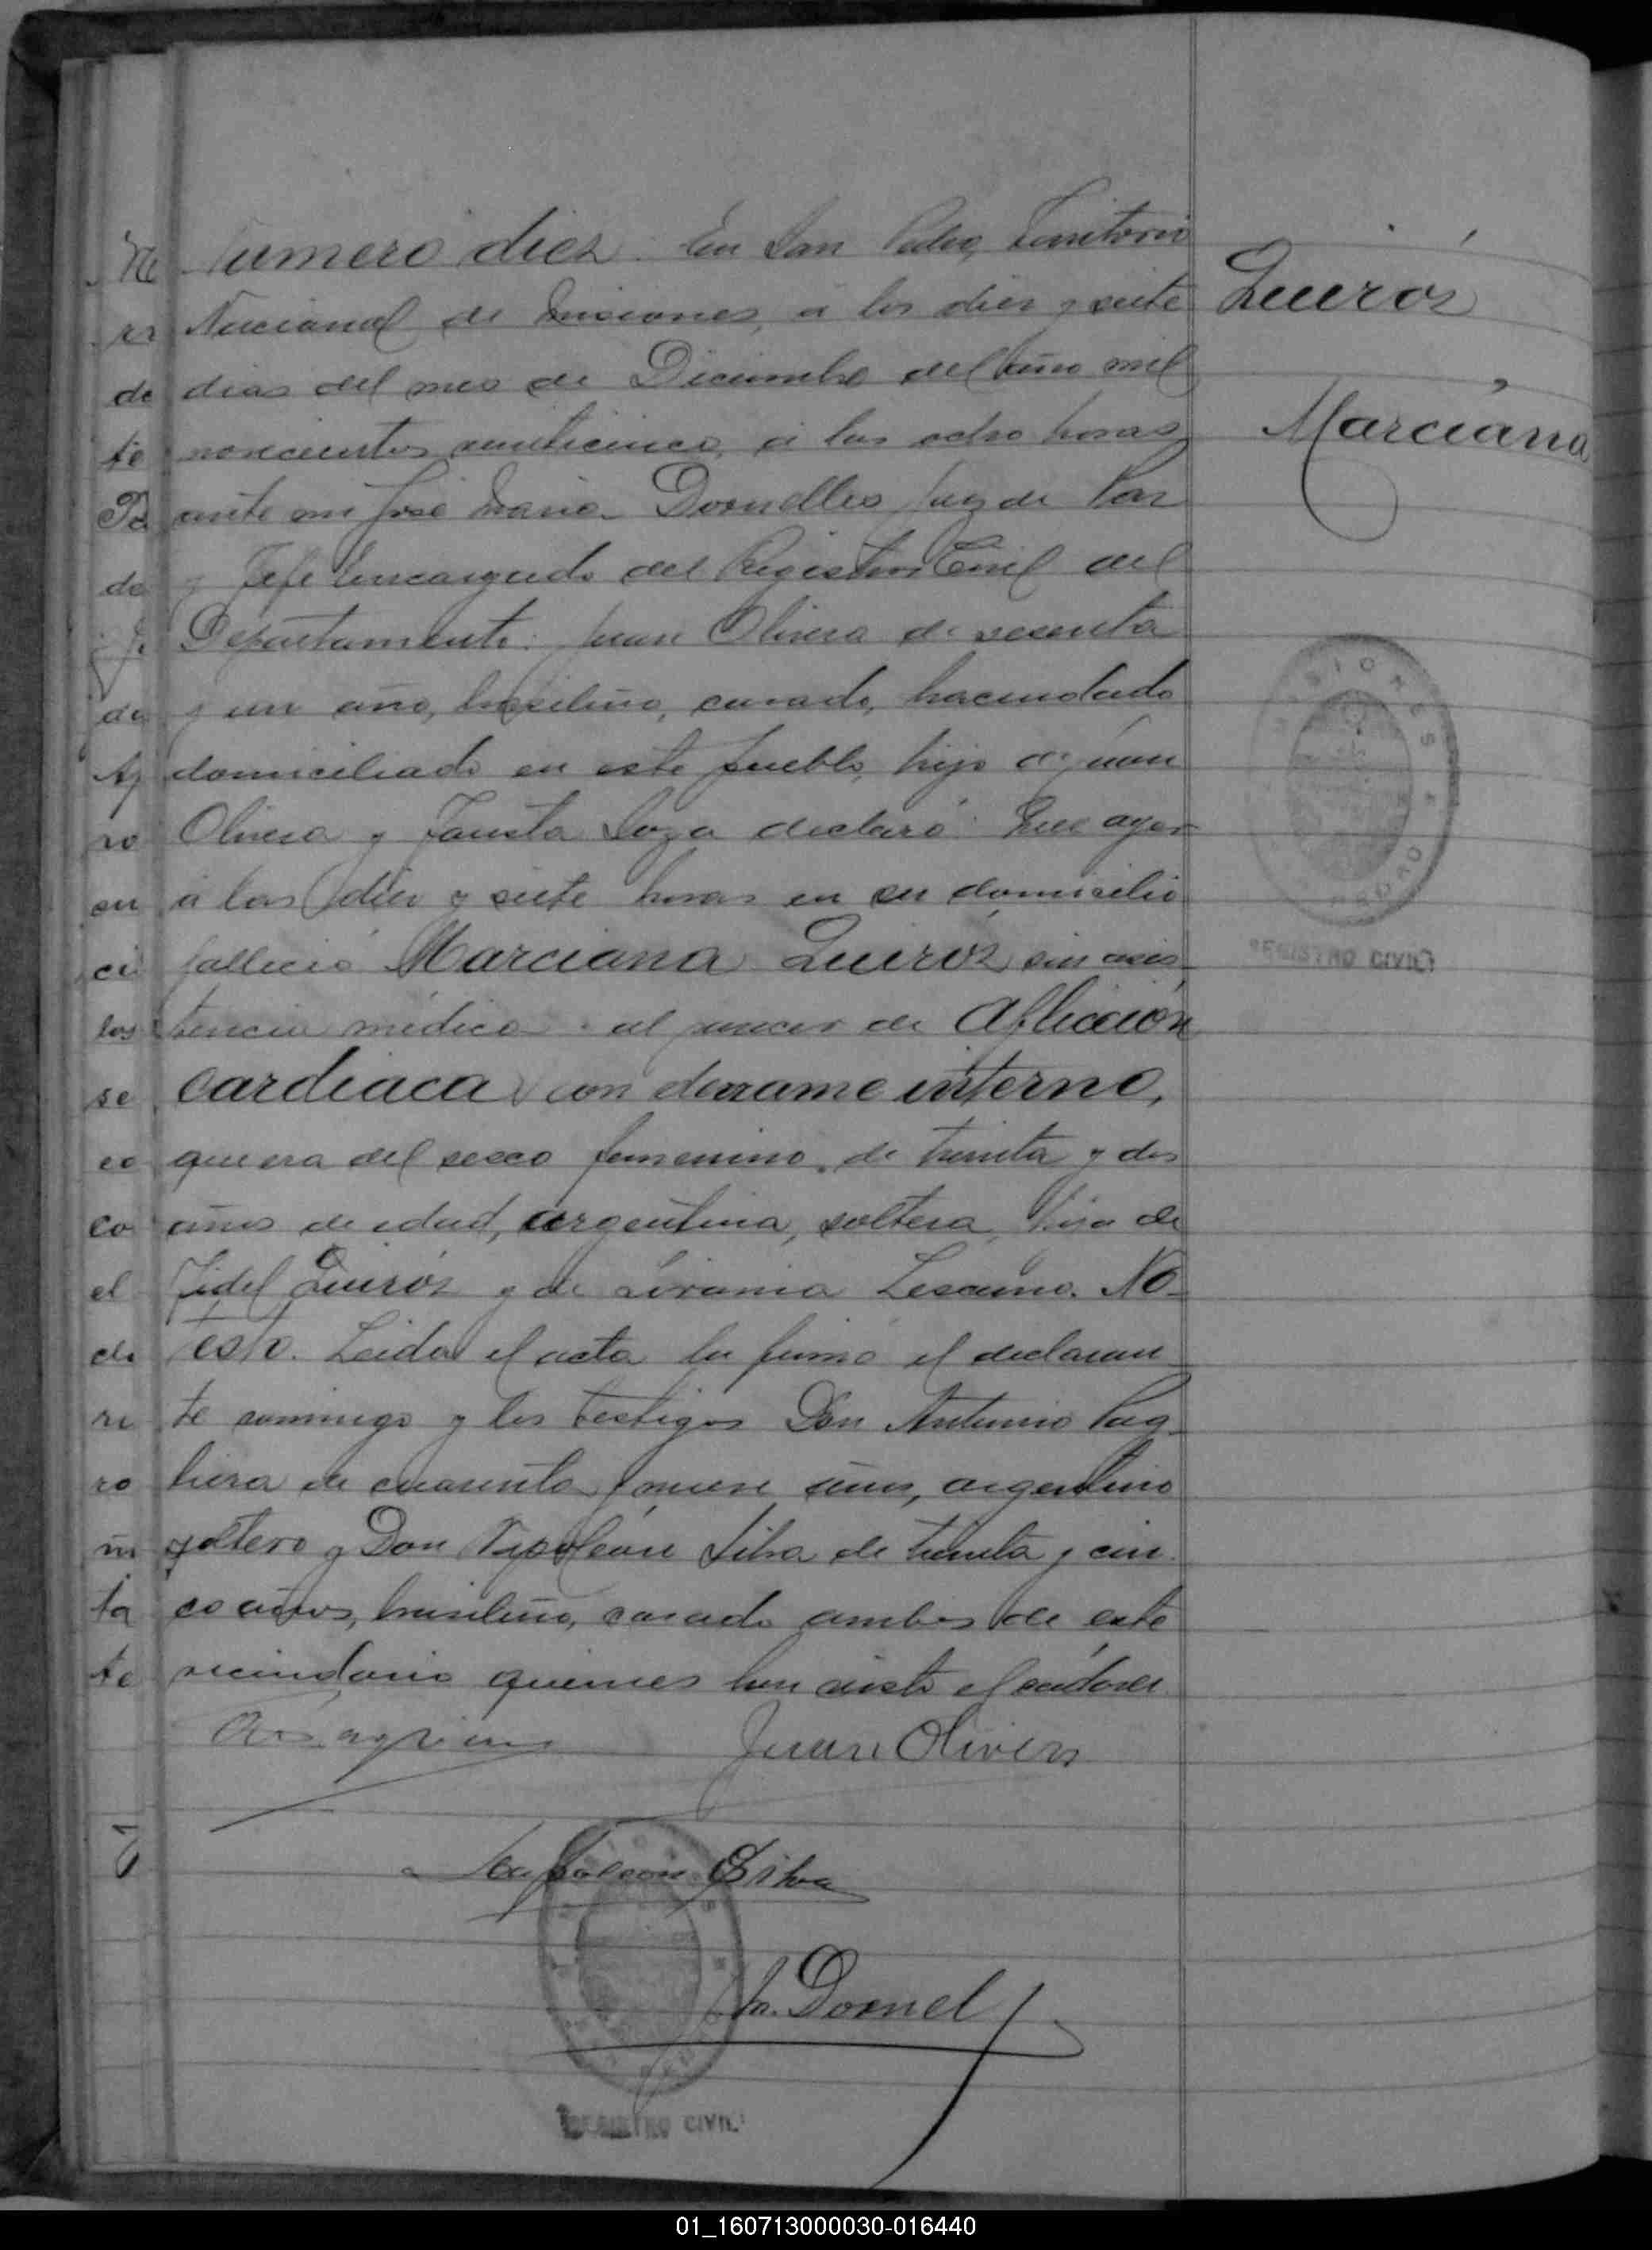 Numero diez. En San Pedro, Territorio
Nacional de Misiones, a los diez y siete
dias del mes de Diciembre del año mil
novecientos veinticinco, a las ocho horas
ante mi José Maria Dornelles Juez de Paz
y Jefe Encargado del Registro Civil del
Departamento: Juan Olivera de sesenta
y un año, brasileño, casado, hacendado
domiciliado en este pueblo, hijo de Juan
Olivera y Fausta Soza declaró: Que ayer
a las diez y siete horas en su domicilio
falleció Marciana Quiróz sin asis-
tencia médica al parecer de Aflicción
cardiaca con derrame interno,
que era del sexo femenino, de treinta y dos
años de edad, argentina, soltera, hija de
Fidel Quiróz y de Lescano. No
testó. Leida el acta la firmó el declaran-
te conmigo y los testigos Don Antonio
de cuarenta y nueve años, argentino
soltero y Don Napoleón Silva de treinta y cin-
co años, brasileño, casado ambos de este
vecindario quienes han visto el cadáver
Juan Olivera
Napoleon Silva
M. Dornel
REGISTRO CIVIL
Quiróz
Marciana
MISIONES
PEDRO
REGISTRO CIVIL
Ne
rr
de
te
Pa
de
J.
de
Ay
ro
en
ci
las
se
eo
co
el
de
ri
ro
ni
ta
te
01_160713000030-016440